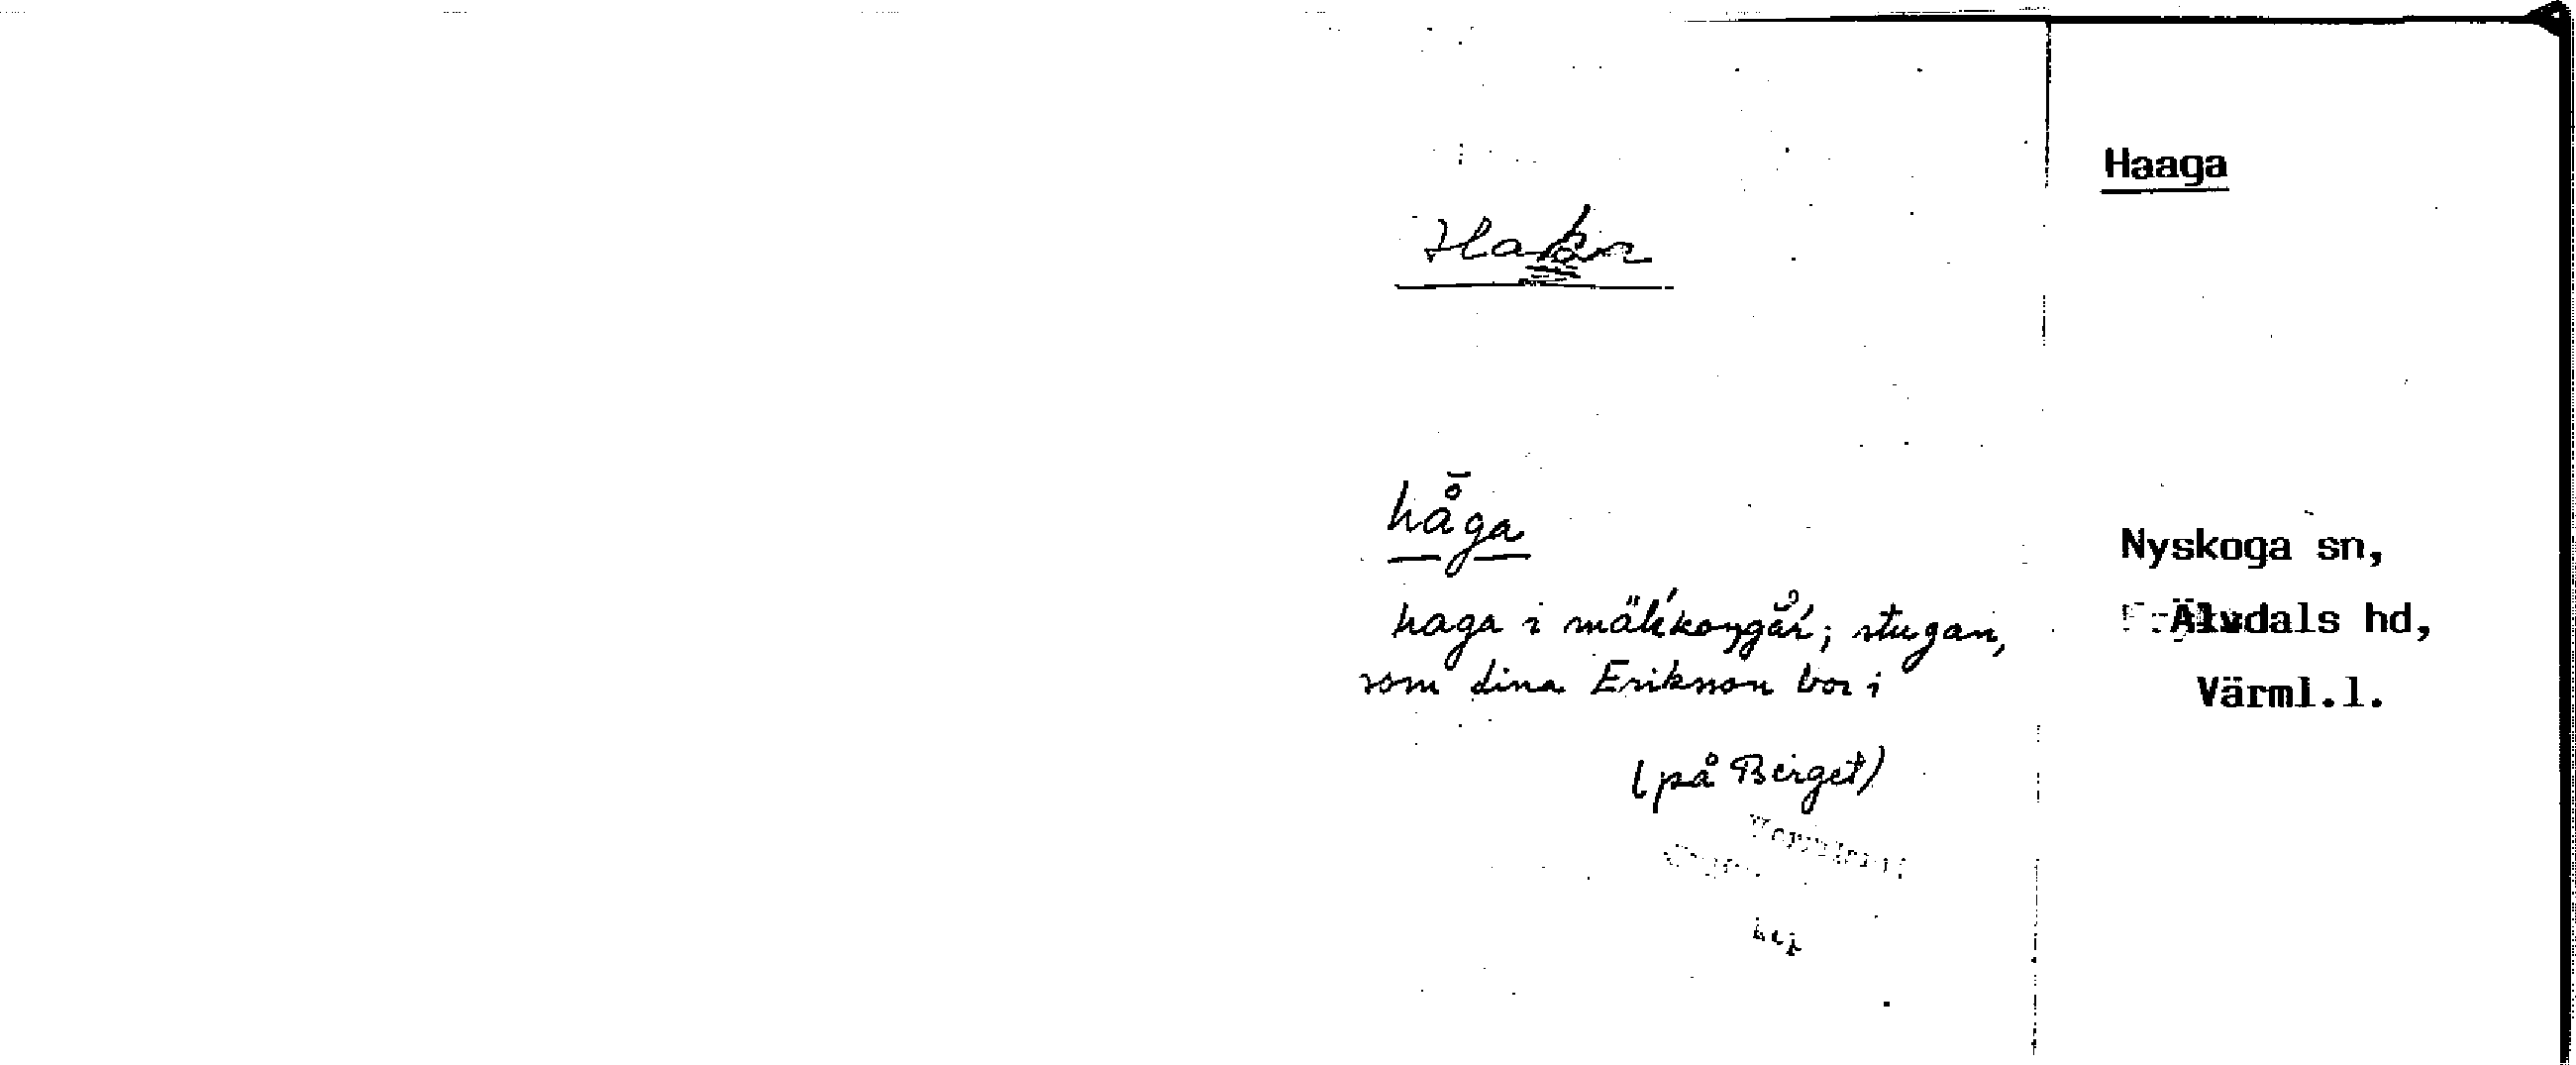 Haaga
Haka
håga
haga i mälkkoŋgår; stugan,
som Lina Eriksson bor i
(på Berget)
Nyskoga sn,
Älvdals hd,
Värml.l.